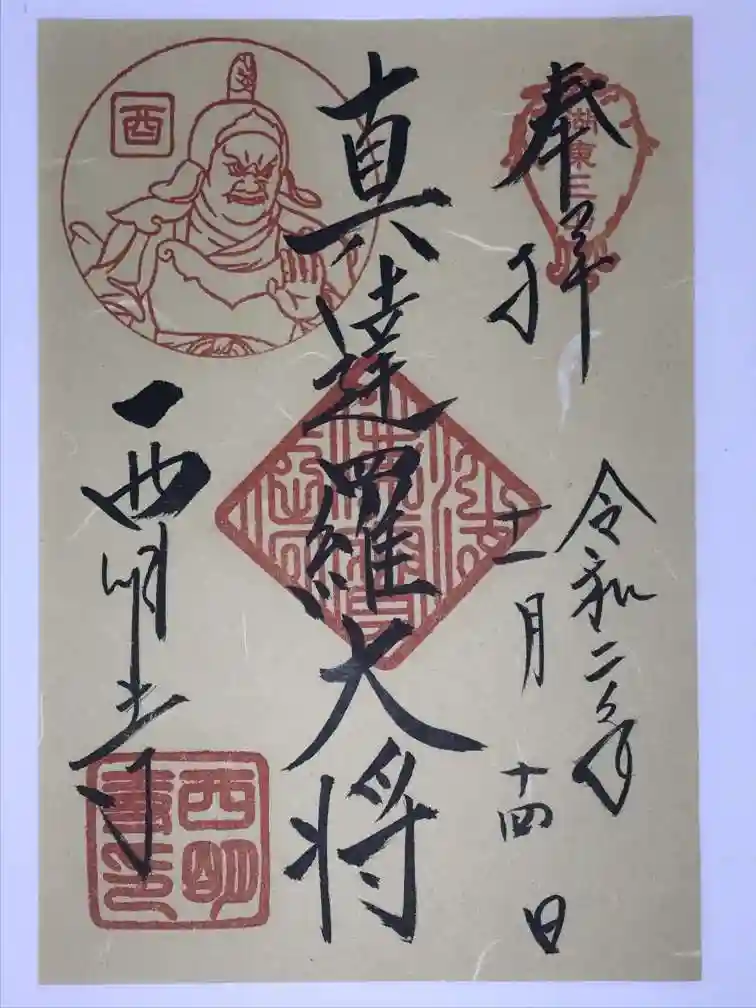 奉拝
湖東三
令和二年
十一月十四日
真達羅大将
酉
西明寺
西明
寺印